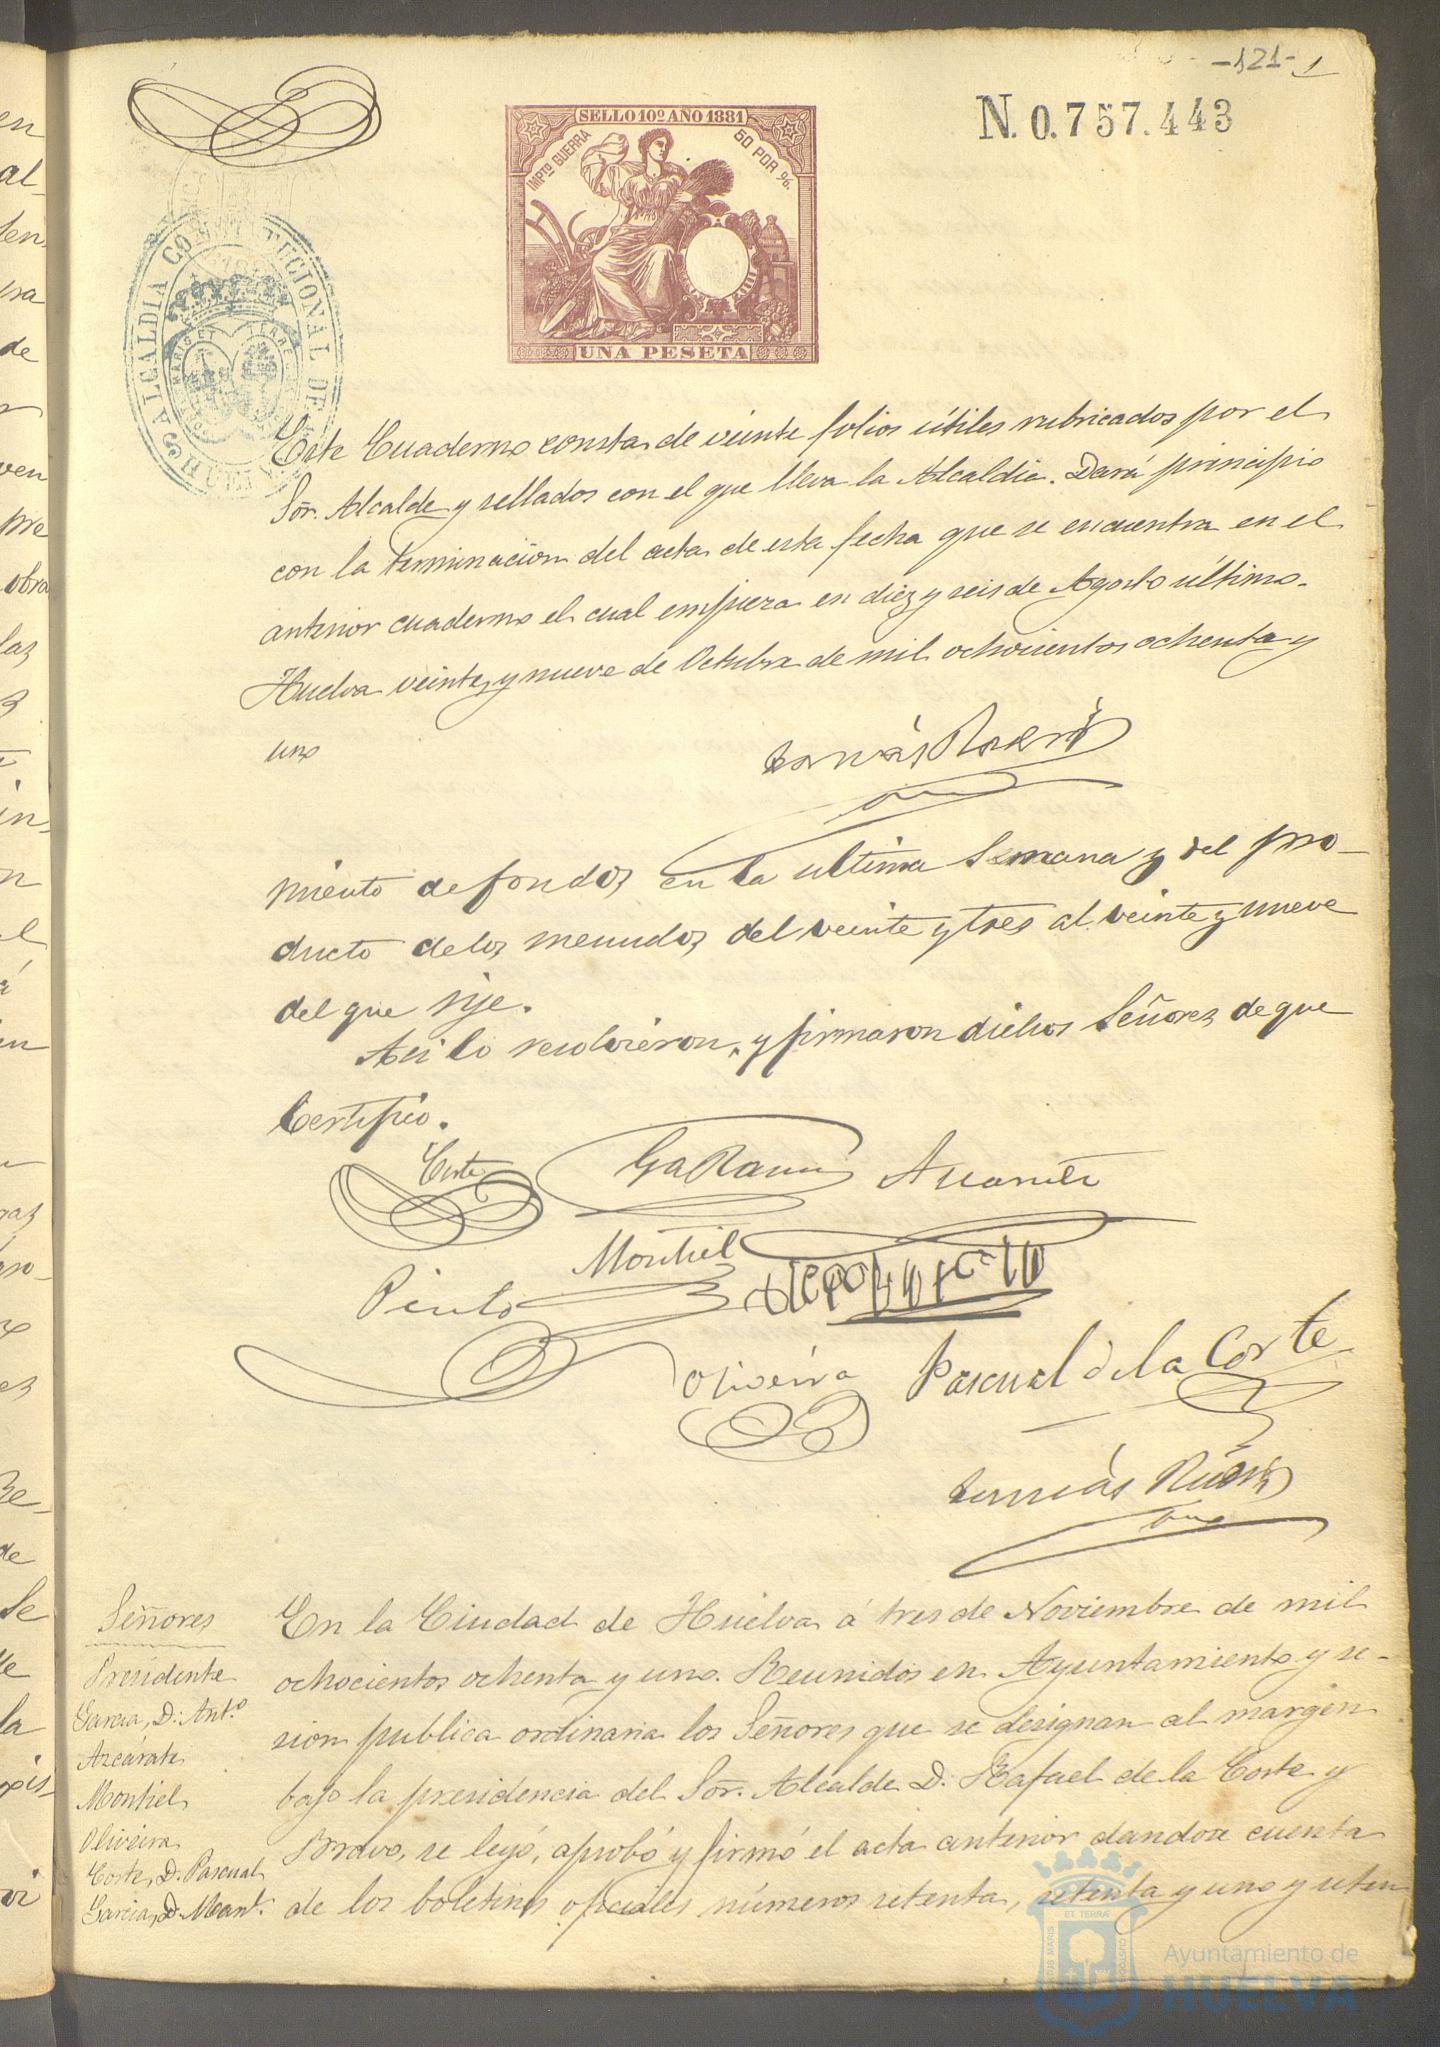 -121- 1
N. 0.757.443
SELLO 10º AÑO 1881
IMPTO GUERRA
50 POR %.
UNA PESETA
ALCALDIA CONSTITUCIONAL DE HUELVA
Este Cuaderno consta de veinte folios útiles rubricados por el
Sõr. Alcalde y sellados con el que lleva la Alcaldia. Dará principio
con la terminación del acta de esta fecha que se encuentra en el
anterior cuaderno el cual empieza en diez y seis de Agosto último.
Huelva veinte y nueve de Octubre de mil ochocientos ochenta y
uno
Tomás
miento de fondos en la ultima Semana y del pro-
ducto de los menudos del veinte y tres al veinte y nueve
del que rije.
Asi lo resolvieron, y firmaron dichos Señores de que
Certifico.
Corte
Azcarate
Montiel
Pinto
Oliveira
Pascual de la Corte
Tomás
Señores
Presidente
Garcia, D. Antº
Azcárate
Montiel
Oliveira
Corte, D. Pascual
Garcia, D. Man.
En la Ciudad de Huelva á tres de Noviembre de mil
ochocientos ochenta y uno. Reunidos en Ayuntamiento y se-
sion publica ordinaria los Señores que se designan al margen
bajo la presidencia del Sõr. Alcalde D. Rafael de la Corte y
Bravo, se leyó, aprobó y firmó el acta anterior dandose cuenta
de los boletines oficiales números setenta, setenta y uno y seten
Ayuntamiento de
HUELVA